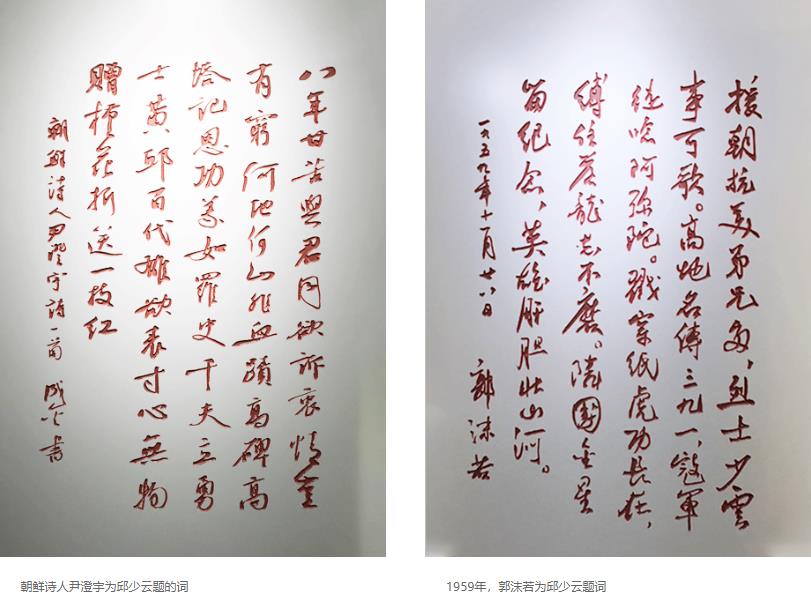 八年甘苦與君同欲訴衷情意
有窮何地何山非血蹟高碑高
塔記恩功義如羅史千夫立勇
士黄邱百代雄欲表寸心無物
贈花折送一枝紅
朝鮮诗人尹澄宇詩一首 书
朝鲜诗人尹澄宇为邱少云题的词
援朝抗美弟兄多，烈士少雲
事可歌。高地名傳三九一，冠軍
继唸阿弥陀。戳穿纸虎功長在，
縛住蒼龍志不磨。隣國金星
留纪念，英雄肝胆壮山河。
一九五九年十一月廿八日
郭沫若
1959年，郭沫若为邱少云题词